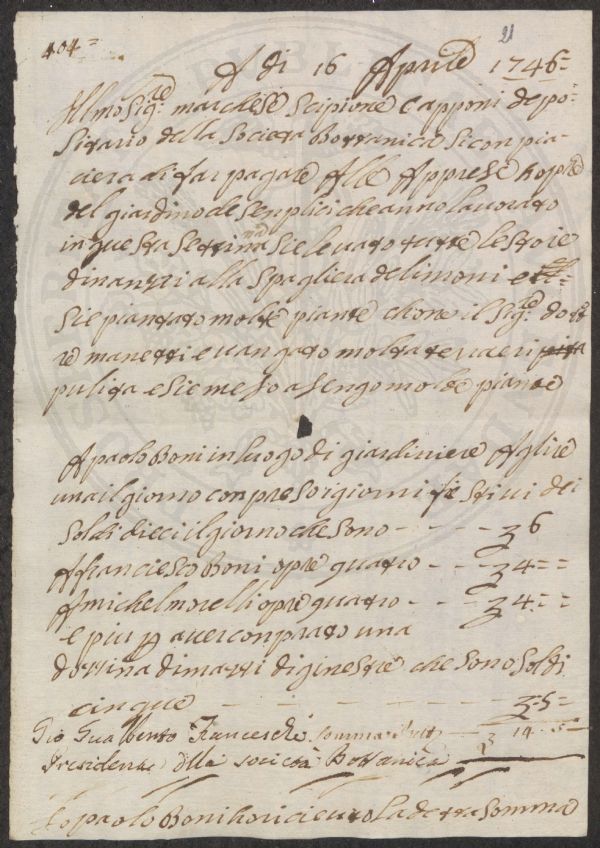 404=
21
A di 16 Aprile 1746=
Ill:mo Sig:re marchese Scipione Capponi depo-
Sitario della Societa Bottanica Si conpia-
ciera di far pagare Alle Apprese hopre
del giardino de Senplici che anno lavorato
in questa Settimana Sie levato tutte le Stoie
dinanzi alla Spagliera de limoni e
Sie piantato molte piante chone il Sig:re dotto
re manetti e vangato molta terra e ri
pulita e Sie meso a Sengo molte piante
A paolo Boni in luogo di giardiniere A glire
una il giorno conpresoi giorni festivi dei
Soldi dieci il giorno che sono - - - - 6
A franciesco Boni opre quatro - - - 4 - =
A michel morelli opre quatro - - - 4 = =
e piu p aver conprato una
dozzina di mazzi di ginestre che sono Soldi
cinque - - - - - - - - 5 =
Gio Gualberto Franceschi somma tutto 14 - 5 -
Presidente della società Bottanica
Io paolo Boni ho ricieuto la detta Somma